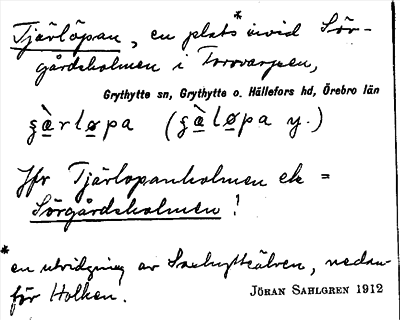 Tjärlöpan, en plats* invid Sör-
gårdsholmen i Torrvarpen,
Grythytte sn, Grythytte o. Hällefors hd, Örebro län
(
y.)
Jfr Tjärlopanholmen ek =
Sörgårdsholmen!
* en utvidgning av Saxhytteälven, nedan-
för Holken.
JÖRAN SAHLGREN 1912